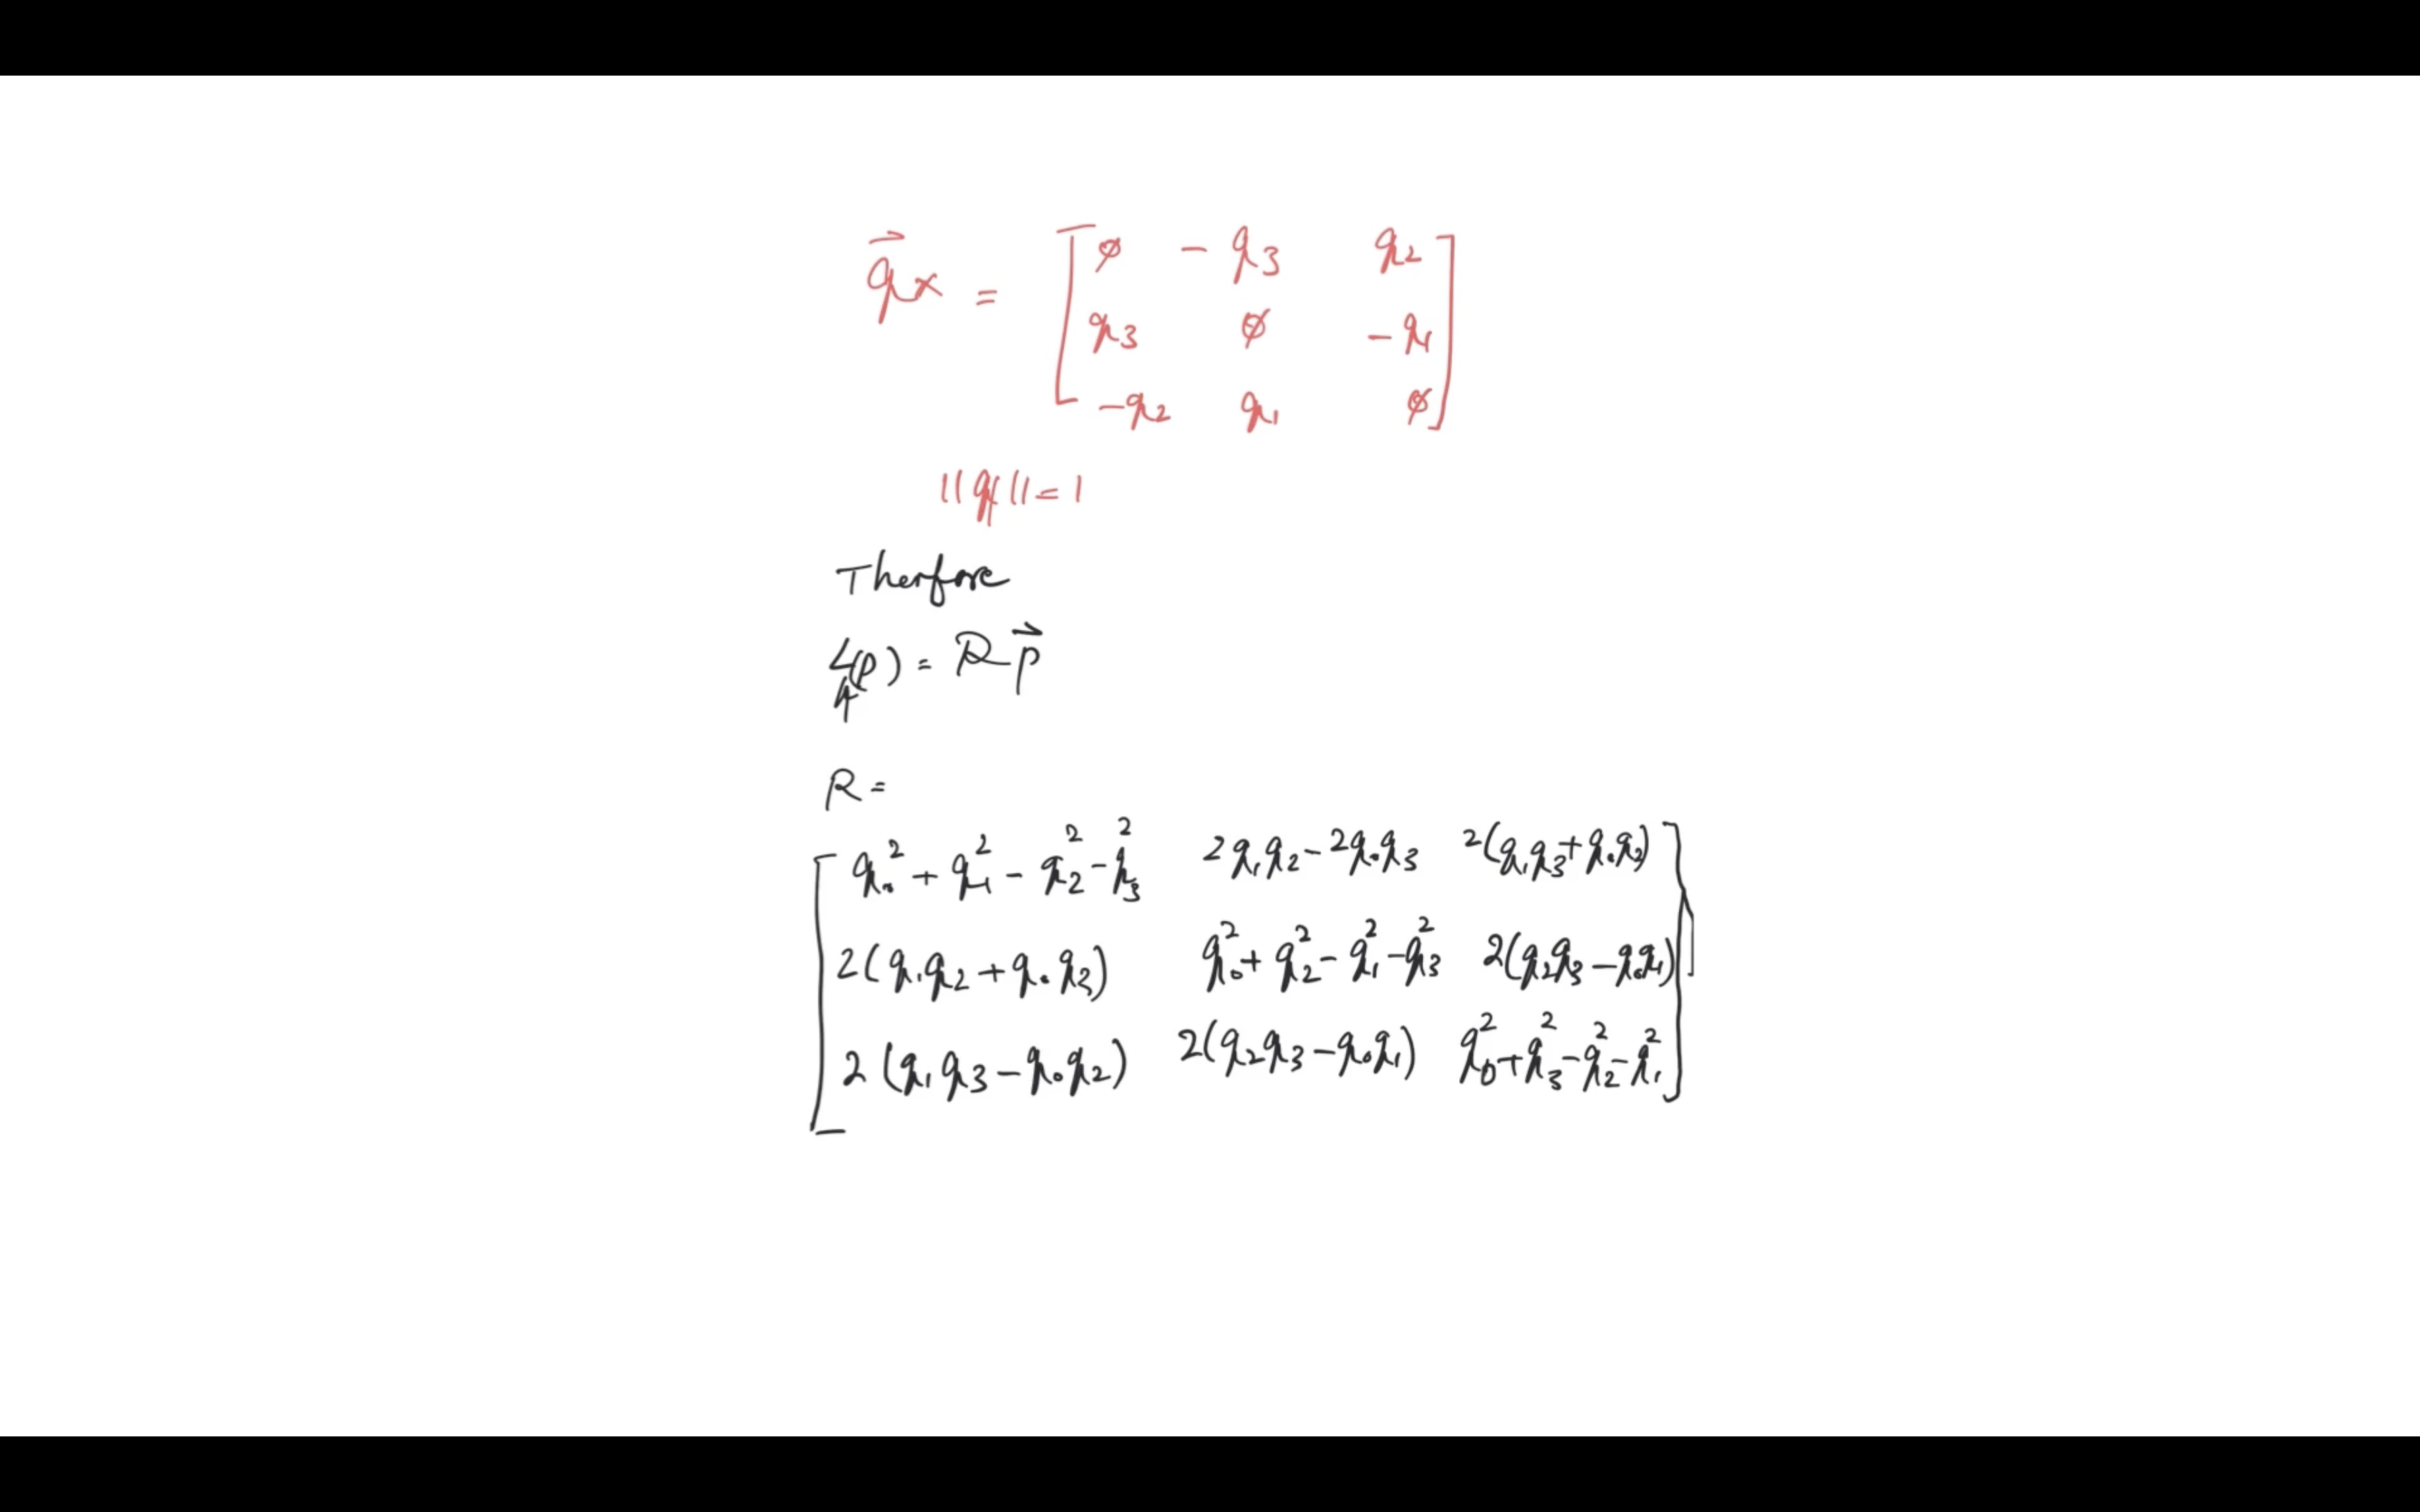 q⃗× = [ 0 -q₃ q₂
q₃ 0 -q₁
-q₂ q₁ 0 ]
||q|| = 1
Therfore
L_q(p) = R p⃗
R =
[ q₀² + q₁² - q₂² - q₃² 2q₁q₂ - 2q₀q₃ 2(q₁q₃ + q₀q₂)
2(q₁q₂ + q₀q₃) q₀² + q₂² - q₁² - q₃² 2(q₂q₃ - q₀q₁)
2(q₁q₃ - q₀q₂) 2(q₂q₃ - q₀q₁) q₀² + q₃² - q₂² - q₁² ]